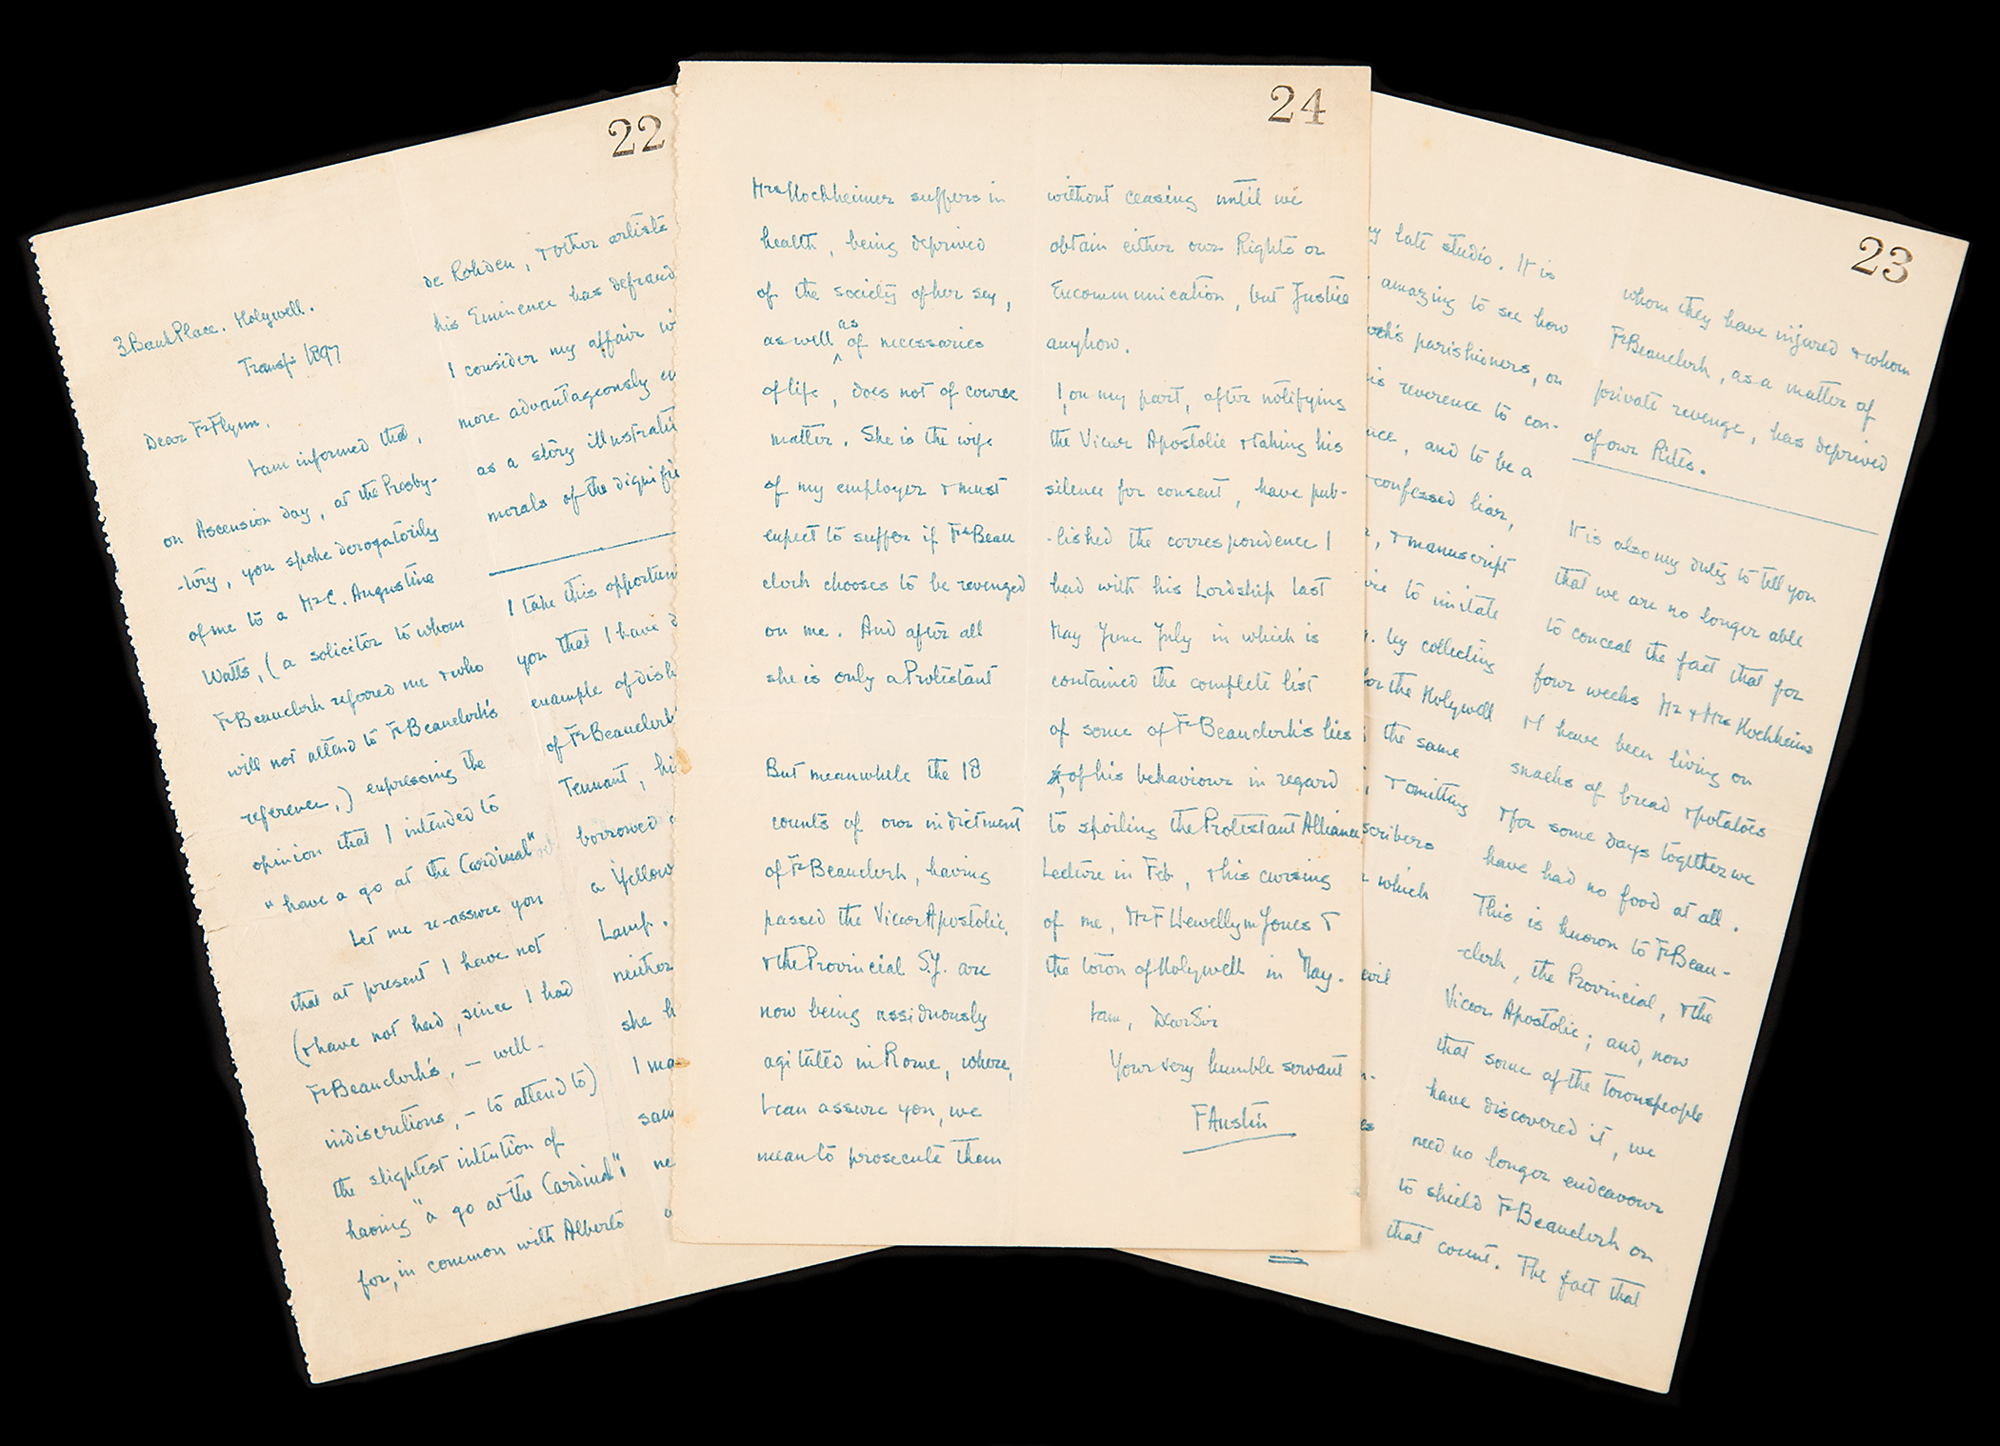 22
3 Bank Place. Holywell.
Transf: 1897
Dear Fr Flynn,
I am informed that,
on Ascension day, at the Presby-
-tery, you spoke derogatorily
of me to a Mr C. Augustine
Watts, (a solicitor to whom
Fr Beauclerk referred me & who
will not attend to Fr Beauclerk's
reference,) expressing the
opinion that I intended to
"have a go at the Cardinal"
Let me re-assure you
that at present I have not
(& have not had, since I had
Fr Beauclerk's, – will –
indiscretions, – to attend to)
the slightest intention of
having "a go at the Cardinal";
for, in common with Alberto
de Rohden, & other artists
his Eminence has defraud
I consider my affair
more advantageously
as a story
morals of the
I take this
you that I have
example of
of Fr Beauclerk
Tennant;
borrowed
a Yellow
Lamp.
neither
she
I
24
Mrs Hochheimer suffers in
health, being deprived
of the society of her sex,
as well as of necessaries
of life, does not of course
matter. She is the wife
of my employer & must
expect to suffer if Fr Beau
clerk chooses to be revenged
on me. And after all
she is only a Protestant
But meanwhile the 18
counts of our indictment
of Fr Beauclerk, having
passed the Vicar Apostolic,
& the Provincial S.J. are
now being assiduously
agitated in Rome, where,
I can assure you, we
mean to prosecute them
without ceasing until we
obtain either our Rights or
Excommunication, but Justice
anyhow.
I, on my part, after notifying
the Vicar Apostolic & taking his
silence for consent, have pub-
-lished the correspondence I
had with his Lordship last
May June July in which is
contained the complete list
of some of Fr Beauclerk's lies
, of his behaviour in regard
to spoiling the Protestant Alliance
Lecture in Feb, & his cursing
of me, Mr F Llewellyn Jones &
the town of Holywell in May.
I am, Dear Sir
Your very humble servant
F Austin
23
late studio. It is
amazing to see how
parishioners, on
reverence to con-
and to be a
confessed liar,
& manuscript
to imitate
by collecting
for the Holywell
the same
& omitting
which
whom they have injured & whom
Fr Beauclerk, as a matter of
private revenge, has deprived
of our Rites.
It is also my duty to tell you
that we are no longer able
to conceal the fact that for
four weeks Mr & Mrs Hochheime
r & I have been living on
snacks of bread & potatoes
& for some days together we
have had no food at all.
This is known to Fr Beau-
-clerk, the Provincial, & the
Vicar Apostolic; and, now
that some of the townspeople
have discovered it, we
need no longer endeavour
to shield Fr Beauclerk on
that count. The fact that